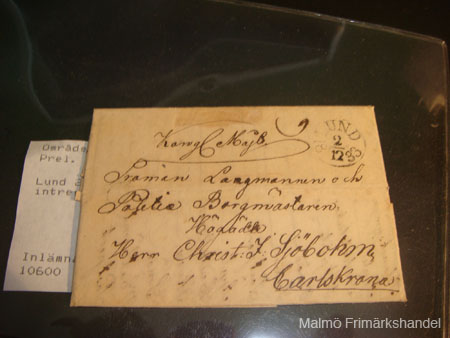 Område
Prel.
Lund
intre
Inlämn
10600
Kongl Majts
LUND
2
12
Troman Laagmannen och
Politie Borgmästaren
Högädle
Herr Christ: J. Sjöbohm
Carlskrona
Malmö Frimärkshandel